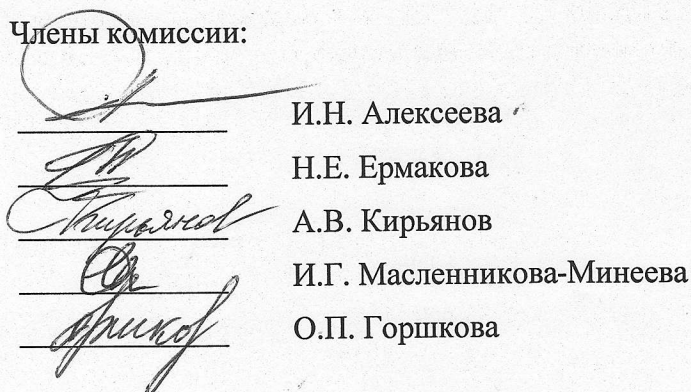 Члены комиссии:
И.Н. Алексеева
Н.Е. Ермакова
Кирьянов А.В. Кирьянов
И.Г. Масленникова-Минеева
О.П. Горшкова